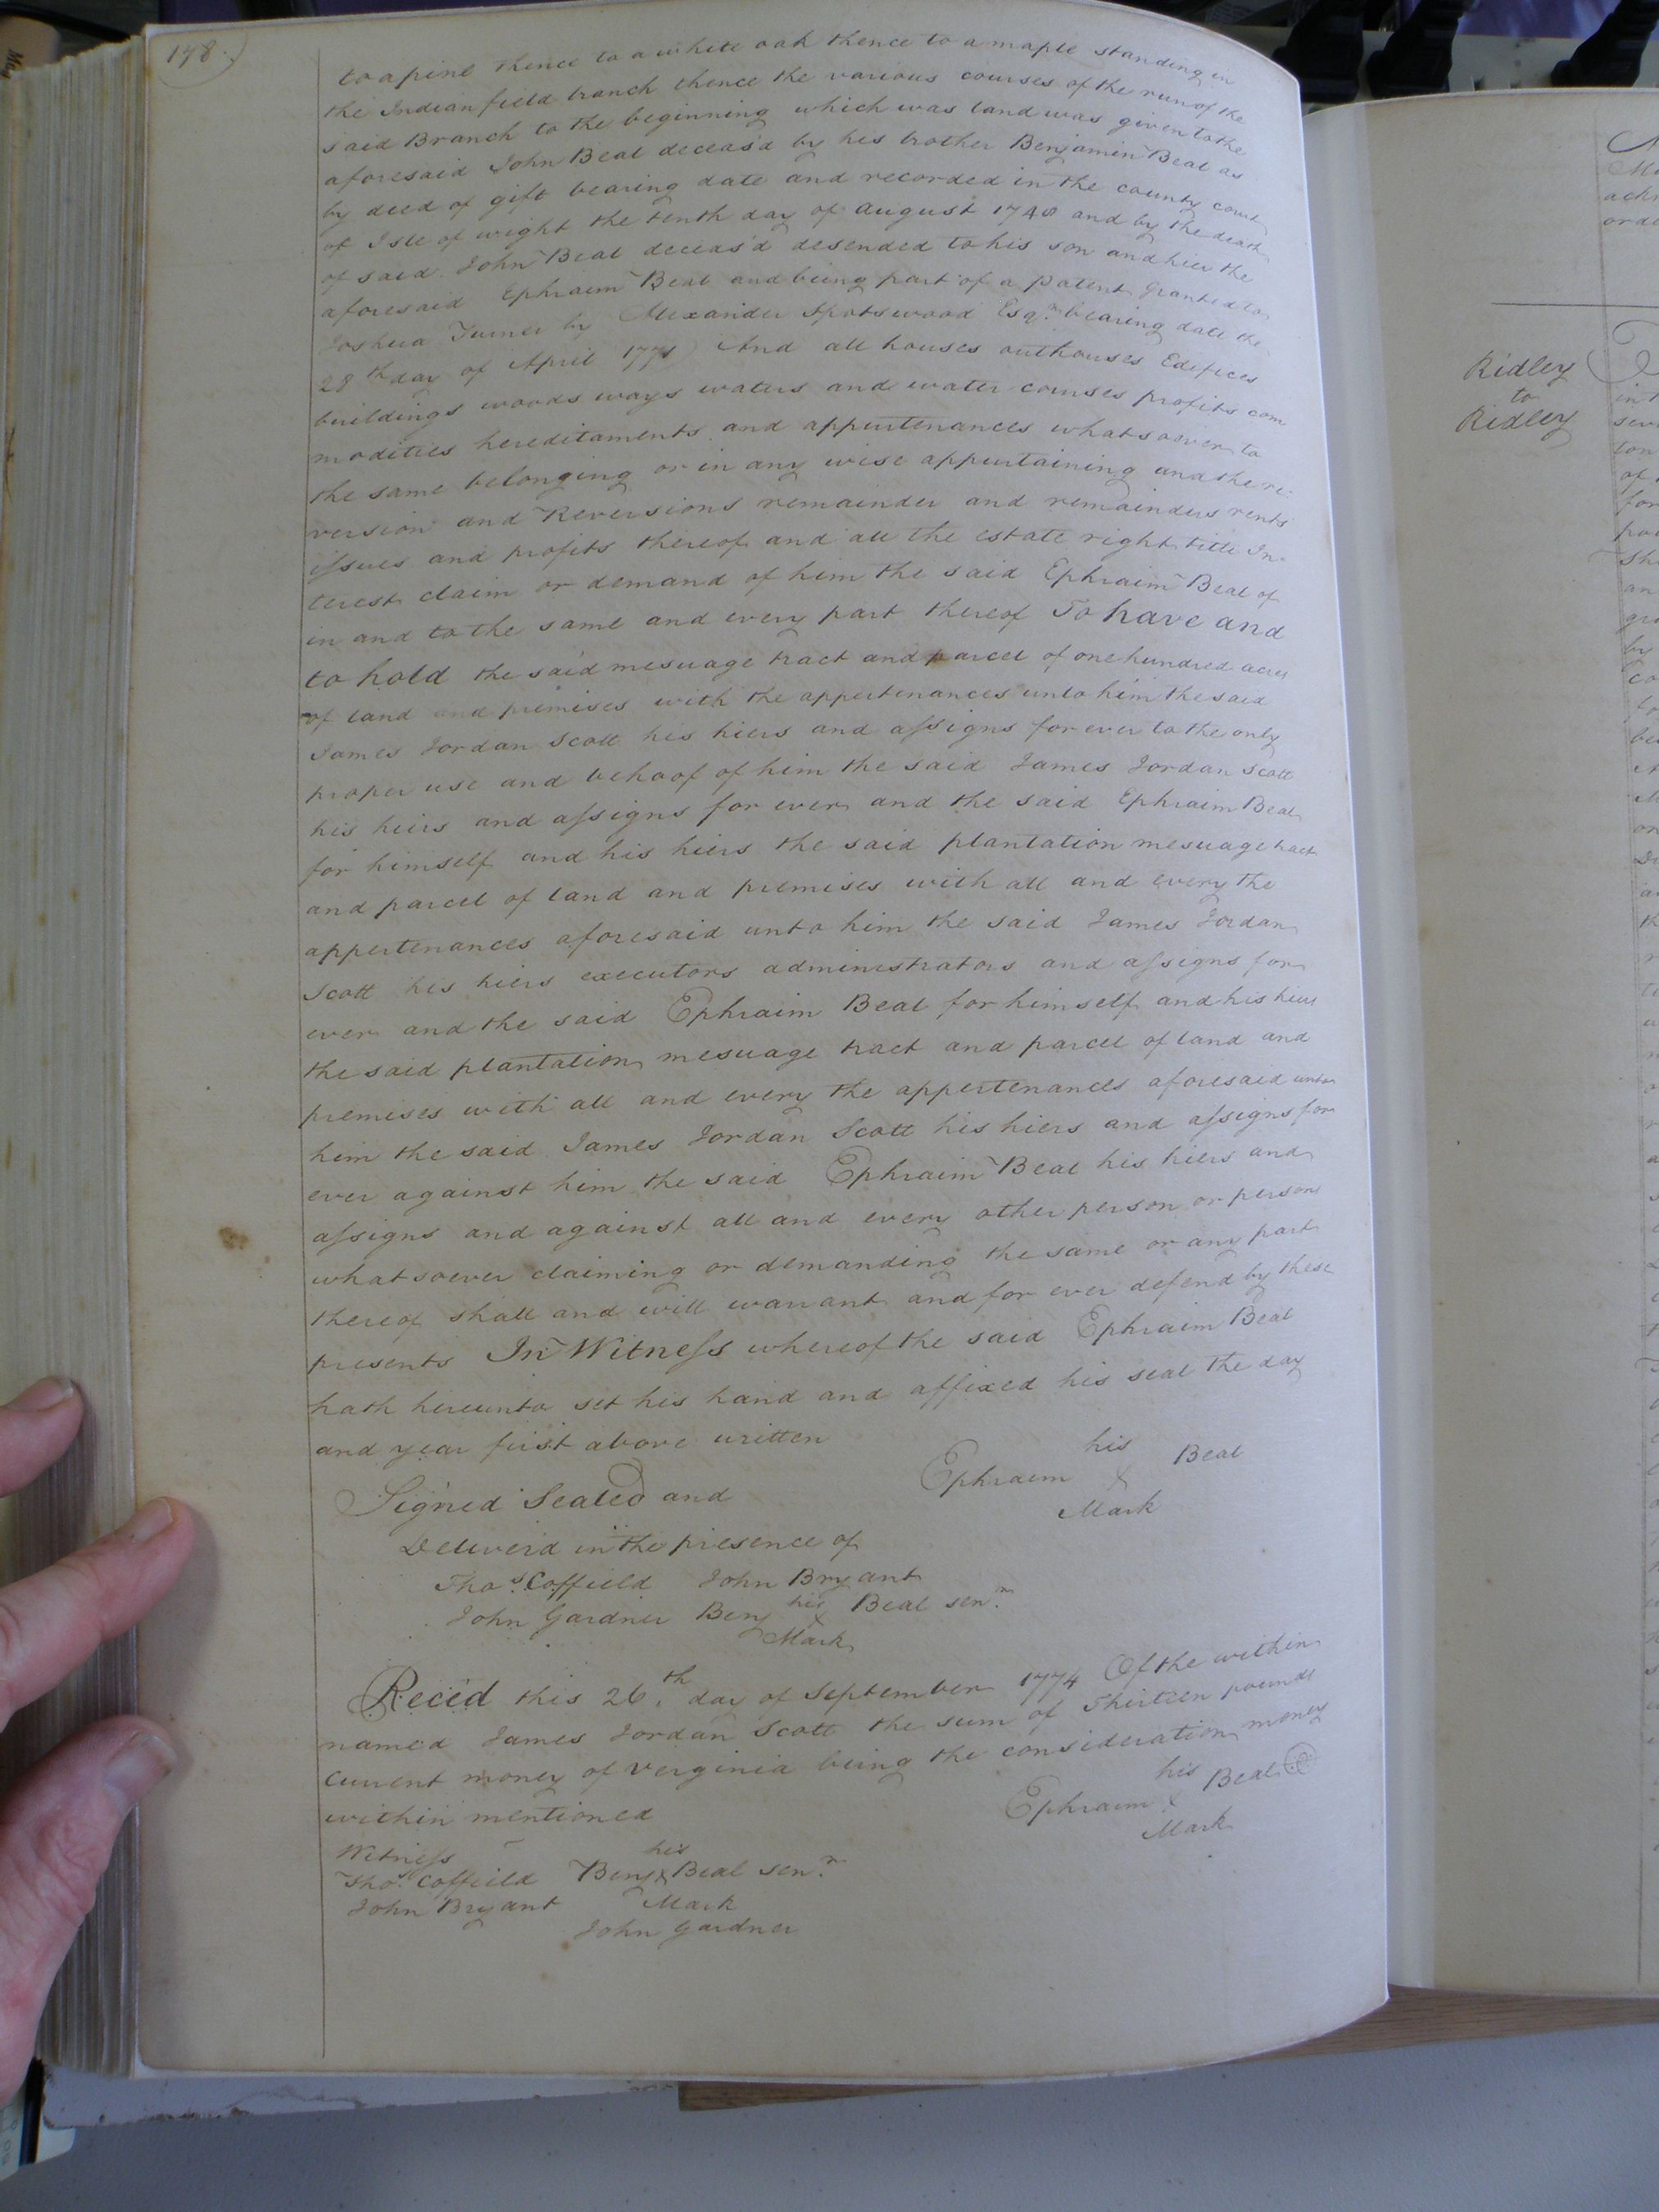 178.
to a pine thence to a white oak thence to a maple standing in
the Indian field branch thence the various courses of the run of the
said Branch to the beginning which was land was given to the
aforesaid John Beal deceas'd by his brother Benjamin Beal as
by deed of gift bearing date and recorded in the county court
of Isle of wight the tenth day of august 1748 and by the death
of said John Beal deceas'd desended to his son and hier the
aforesaid Ephraim Beal and being part of a patent granted to
Joshua Turner by Alexander Spotswood Esqr. bearing date the
28th day of April 1771 And all houses outhouses Edefices
buildings woods ways waters and water courses profits com
modities hereditaments and appurtenances whatsoever to
the same belonging or in any wise appurtaining and the re-
version and Reversions remainder and remainders rents
issues and profits thereof and all the estate right title In-
terest claim or demand of him the said Ephraim Beal of
in and to the same and every part thereof To have and
to hold the said mesuage tract and parcel of one hundred acres
of land and premises with the appertenances unto him the said
James Jordan Scott his hiers and assigns for ever to the only
proper use and behoof of him the said James Jordan Scott
his heirs and assigns for ever and the said Ephraim Beal
for himself and his hiers the said plantation mesuage tract
and parcel of land and premises with all and every the
appertenances aforesaid unto him the said James Jordan
Scott his hiers executors administrators and assigns for
ever and the said Ephraim Beal for himself and his hiers
the said plantation mesuage tract and parcel of land and
premises with all and every the appertenances aforesaid unto
him the said James Jordan Scott his hiers and assigns for
ever against him the said Ephraim Beal his hiers and
assigns and against all and every other person or persons
whatsoever claiming or demanding the same or any part
thereof shall and will warrant and for ever defend by these
presents In Witness whereof the said Ephraim Beal
hath hereunto set his hand and affixed his seal the day
and year first above written
his
Ephraim X Beal
Mark
Signed Sealed and
Deliver'd in the presence of
Thos. Coffield John Bryant
John Gardner Benj his X Beal senr.
Mark
Rece'd this 26th day of September 1774 Of the within
named James Jordan Scott the sum of Thirteen pounds
Current money of Verginia being the consideration money
within mentioned
his
Ephraim X Beal
Mark
Witness
his
Thos. Coffeild Benj X Beal senr.
John Bryant Mark
John Gardner
Ridley
to
Ridley